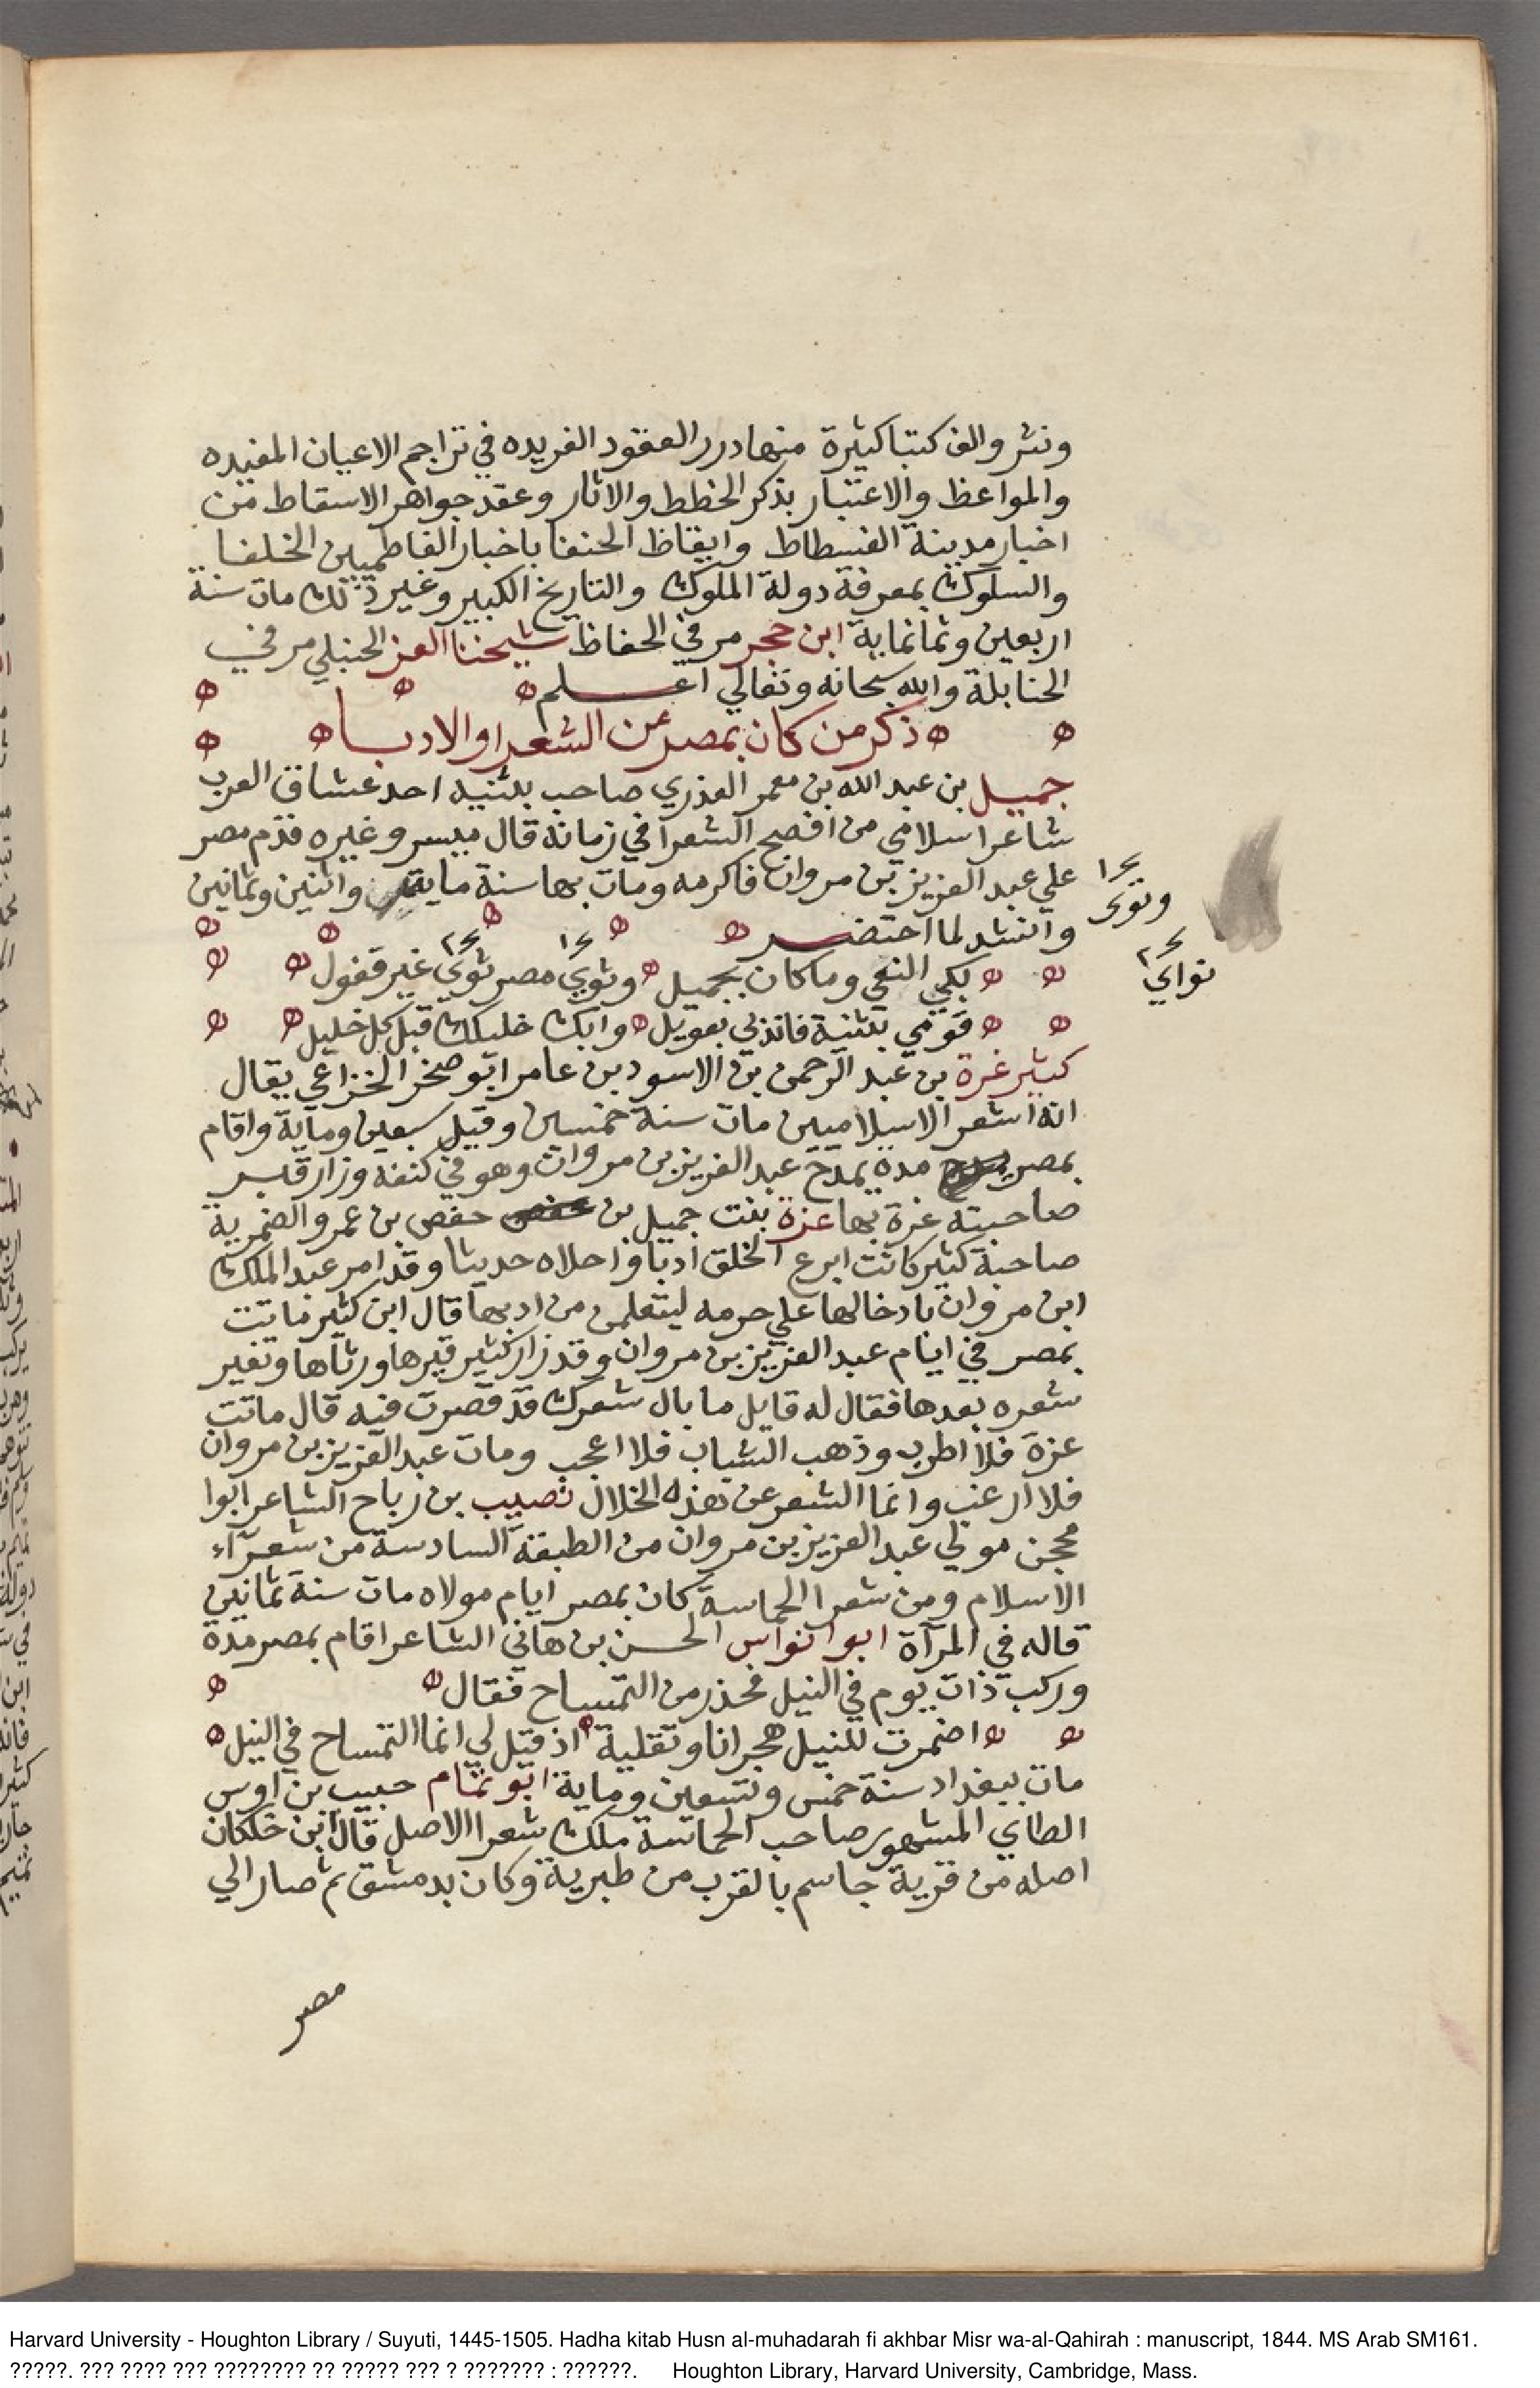 ونثر والف كتبا كثيرة منها درر العقود الفريده في تراجم الاعيان المفيده
والمواعظ والاعتبار بذكر الخطط والاثار وعقد جواهر الاسقاط من
اخبار مدينة الفسطاط وايقاظ الحنفا باخبار الفاطميين الخلفا
والسلوك بمعرفة دولة الملوك والتاريخ الكبير وغير ذلك مات سنة
اربعين وثمانماية ابن حجر مر في الحفاظ شيخنا العز الحنبلي مر في
الحنابلة والله سبحانه وتعالي اعلم
ذكر من كان بمصر من الشعرا والادبا
جميل بن عبد الله بن معمر العذري صاحب بثينة احد عشاق العرب
شاعر اسلامي من افصح الشعرا في زمانه قال ميسر وغيره قدم مصر
علي عبد العزيز بن مروان فاكرمه ومات بها سنة ماية واثنين وثمانين
وانشد لما احتضر
بكي النعي وما كان بجميل وثوي مصر ثوي غير قفول
قومي بثينة فاندبي بعويل وابك خليلك قبل كل خليل
كثير غرة بن عبد الرحمن بن الاسود بن عامر ابو صخر الخزاعي يقال
انه اشعر الاسلاميين مات سنة خمسين وقيل سبعين وماية واقام
بمصر مدة يمدح عبد العزيز بن مروان وهو في كنفه وزار قبر
صاحبته عزة بها عزة بنت جميل بن حفص بن عمرو الضمرية
صاحبة كثير كانت ابرع الخلق ادبا واحلاه حديثا وقد امر عبد الملك
ابن مروان بادخالها علي حرمه ليتعلمن من ادبها قال ابن كثير ماتت
بمصر في ايام عبد العزيز بن مروان وقد زار كثير قبرها ورثاها وتغير
شعره بعدها فقال له قايل ما بال شعرك قد قصرت فيه قال ماتت
عزة فلا اطرب وذهب الشباب فلا اعجب ومات عبد العزيز بن مروان
فلا ارغب وانما الشعر عن هذه الخلال نصيب بن رباح الشاعر ابوا
محجن مولي عبد العزيز بن مروان من الطبقة السادسة من شعرآء
الاسلام ومن شعرا الحماسة كان بمصر ايام مولاه مات سنة ثمانين
قاله في المرآة ابوا نواس الحسن بن هاني الشاعر اقام بمصر مدة
وركب ذات يوم في النيل فحذر من التمساح فقال
اضمرت للنيل هجرانا وتقلية اذ قيل لي انما التمساح في النيل
مات ببغداد سنة خمس وتسعين وماية ابو تمام حبيب بن اوس
الطاي المشهور صاحب الحماسة ملك شعرا الاصل قال ابن خلكان
اصله من قرية جاسم بالقرب من طبرية وكان بدمشق ثم صار الي
مصر
وثوى
ثواي
Harvard University - Houghton Library / Suyuti, 1445-1505. Hadha kitab Husn al-muhadarah fi akhbar Misr wa-al-Qahirah : manuscript, 1844. MS Arab SM161.
?????. ??? ???? ??? ???????? ?? ????? ??? ? ??????? : ??????. Houghton Library, Harvard University, Cambridge, Mass.